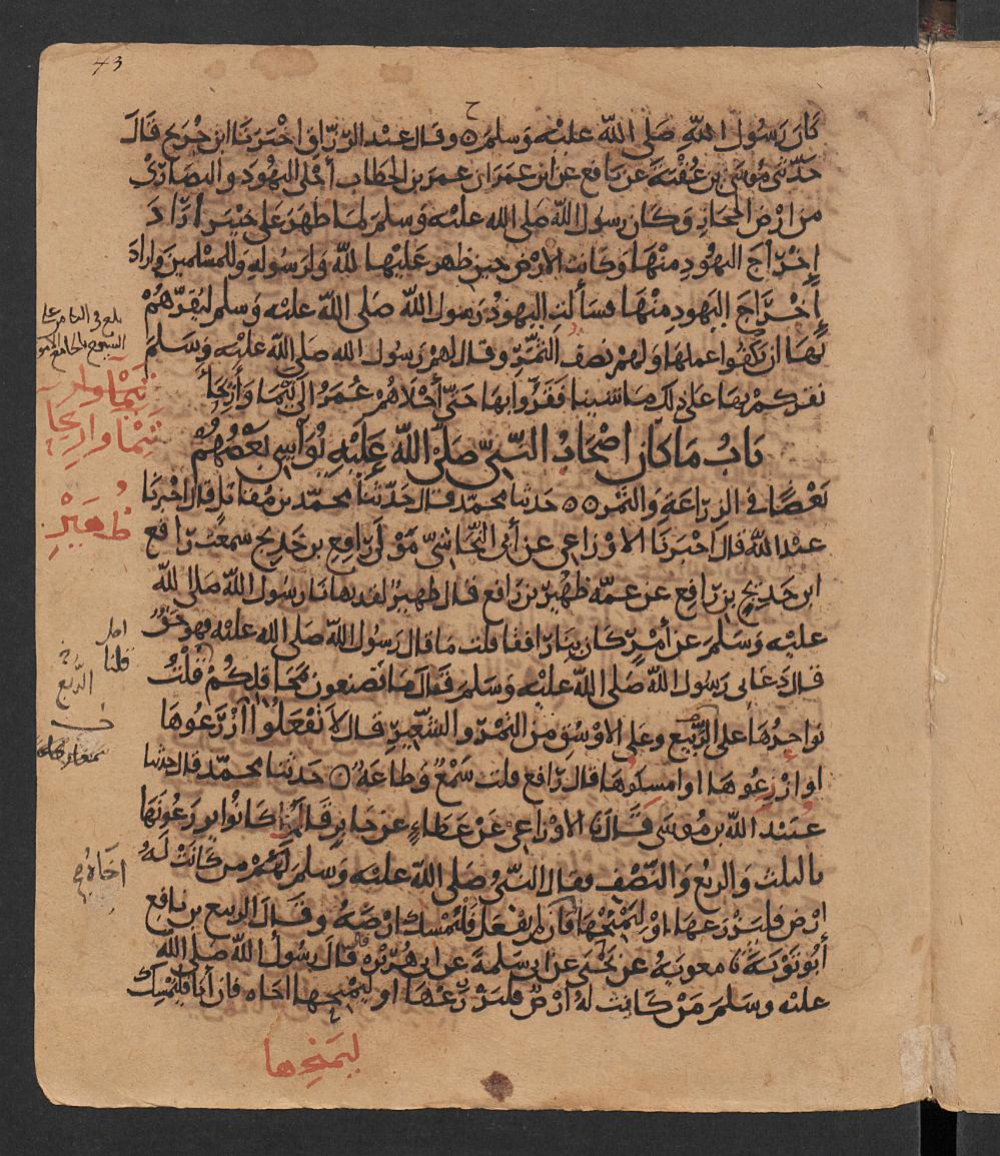 43
كان رسول الله صلى الله عليه وسلم ۞ وقال عبد الرزاق اخبرنا ابن جريج قال
حدثني موسى بن عقبة عن نافع عن ابن عمر ان عمر بن الخطاب أجلى اليهود والنصارى
من ارض الحجاز وكان رسول الله صلى الله عليه وسلم لما ظهر على خيبر أراد
إخراج اليهود منها وكانت الارض حين ظهر عليها لله ولرسوله وللمسلمين واراد
إخراج اليهود منها فسألت اليهود رسول الله صلى الله عليه وسلم ليقرهم
بها ان يكفوا عملها ولهم نصف الثمر وقال لهم رسول الله صلى الله عليه وسلم
نقركم بها على ذلك ما شينا فقروا بها حتى أجلاهم عمر الى تيما وأريحا
باب ما كان اصحاب النبي صلى الله عليه يواسي بعضهم
بعضا في الزراعة والثمر ۞۞ حدثنا محمد قال حدثنا محمد بن مقاتل قال اخبرنا
عبد الله قال اخبرنا الاوزاعي عن أبي النجاشي مولى رافع بن خديج سمعت رافع
ابن خديج بن رافع عن عمه ظهير بن رافع قال ظهير لقد نهانا رسول الله صلى لله
عليه وسلم عن أمر كان بنا رافقا قلت ما قال رسول الله صلى الله عليه فهو حق
قال دعاني رسول الله صلى الله عليه وسلم فقال ما تصنعون بمحاقلكم قلت
نواجرها على الربيع وعلى الاوسق من التمر والشعير قال لا تفعلوا ازرعوها
او ازرعوها او امسكوها قال رافع قلت سمع وطاعة ۞ حدثنا محمد قال حدثنا
عبيد الله بن موسى قال انا الاوزاعي عن عطاء عن جابر قال كانوا يزرعونها
بالثلث والربع والنصف فقال النبي صلى الله عليه وسلم لهم من كانت له
ارض فليزرعها او ليمنحها فان لم يفعل فليمسك ارضه وقال الربيع بن نافع
أبو توبة نا معوية عن يحيى عن ابي سلمة عن ابي هريرة قال رسول الله صلى الله
عليه وسلم من كانت له ارض فليزرعها او ليمنحها اخاه فان أبا فليمسك
بلغ في
تيما وأريحا
ظهير
قلنا
الربع
اخاه
ليمنحها